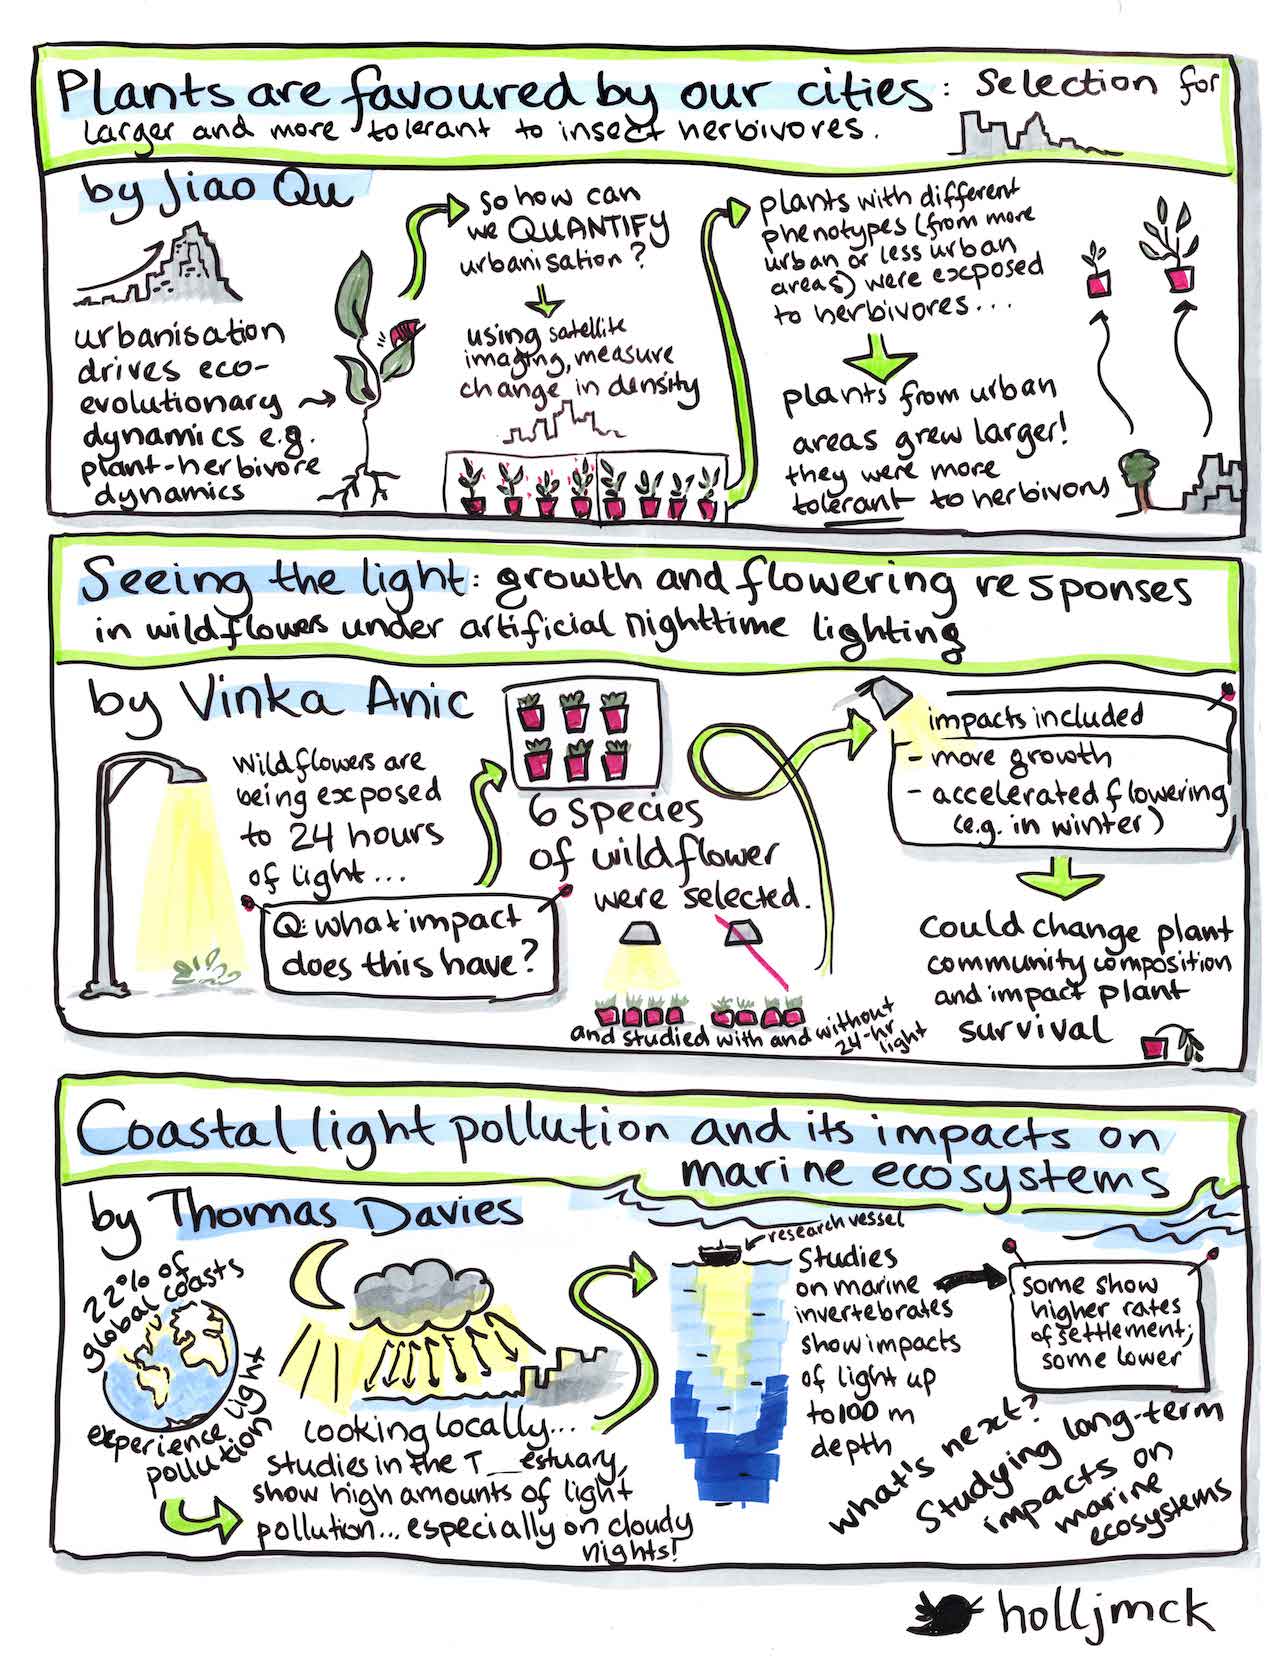 Plants are favoured by our cities: Selection for
larger and more tolerant to insect herbivores.
by Jiao Qu
urbanisation
drives eco-
evolutionary
dynamics e.g.
plant-herbivore
dynamics
so how can
we QUANTIFY
urbanisation?
using satellite
imaging, measure
change in density
plants with different
phenotypes (from more
urban or less urban
areas) were exposed
to herbivores...
plants from urban
areas grew larger!
they were more
tolerant to herbivory
Seeing the light: growth and flowering responses
in wildflowers under artificial nighttime lighting
by Vinka Anic
Wildflowers are
being exposed
to 24 hours
of light...
Q: what impact
does this have?
6 species
of wildflower
were selected.
and studied with and without
24-hr
light
impacts included
- more growth
- accelerated flowering
(e.g. in winter)
Could change plant
community composition
and impact plant
survival
Coastal light pollution and its impacts on
marine ecosystems
by Thomas Davies
22% of
global coasts
experience light
pollution
Looking locally...
studies in the T__estuary,
show high amounts of light
pollution... especially on cloudy
nights!
research vessel
Studies
on marine
invertebrates
show impacts
of light up
to 100 m
depth
some show
higher rates
of settlement;
some lower
what's next?
Studying long-term
impacts on
marine
ecosystems
holljmck